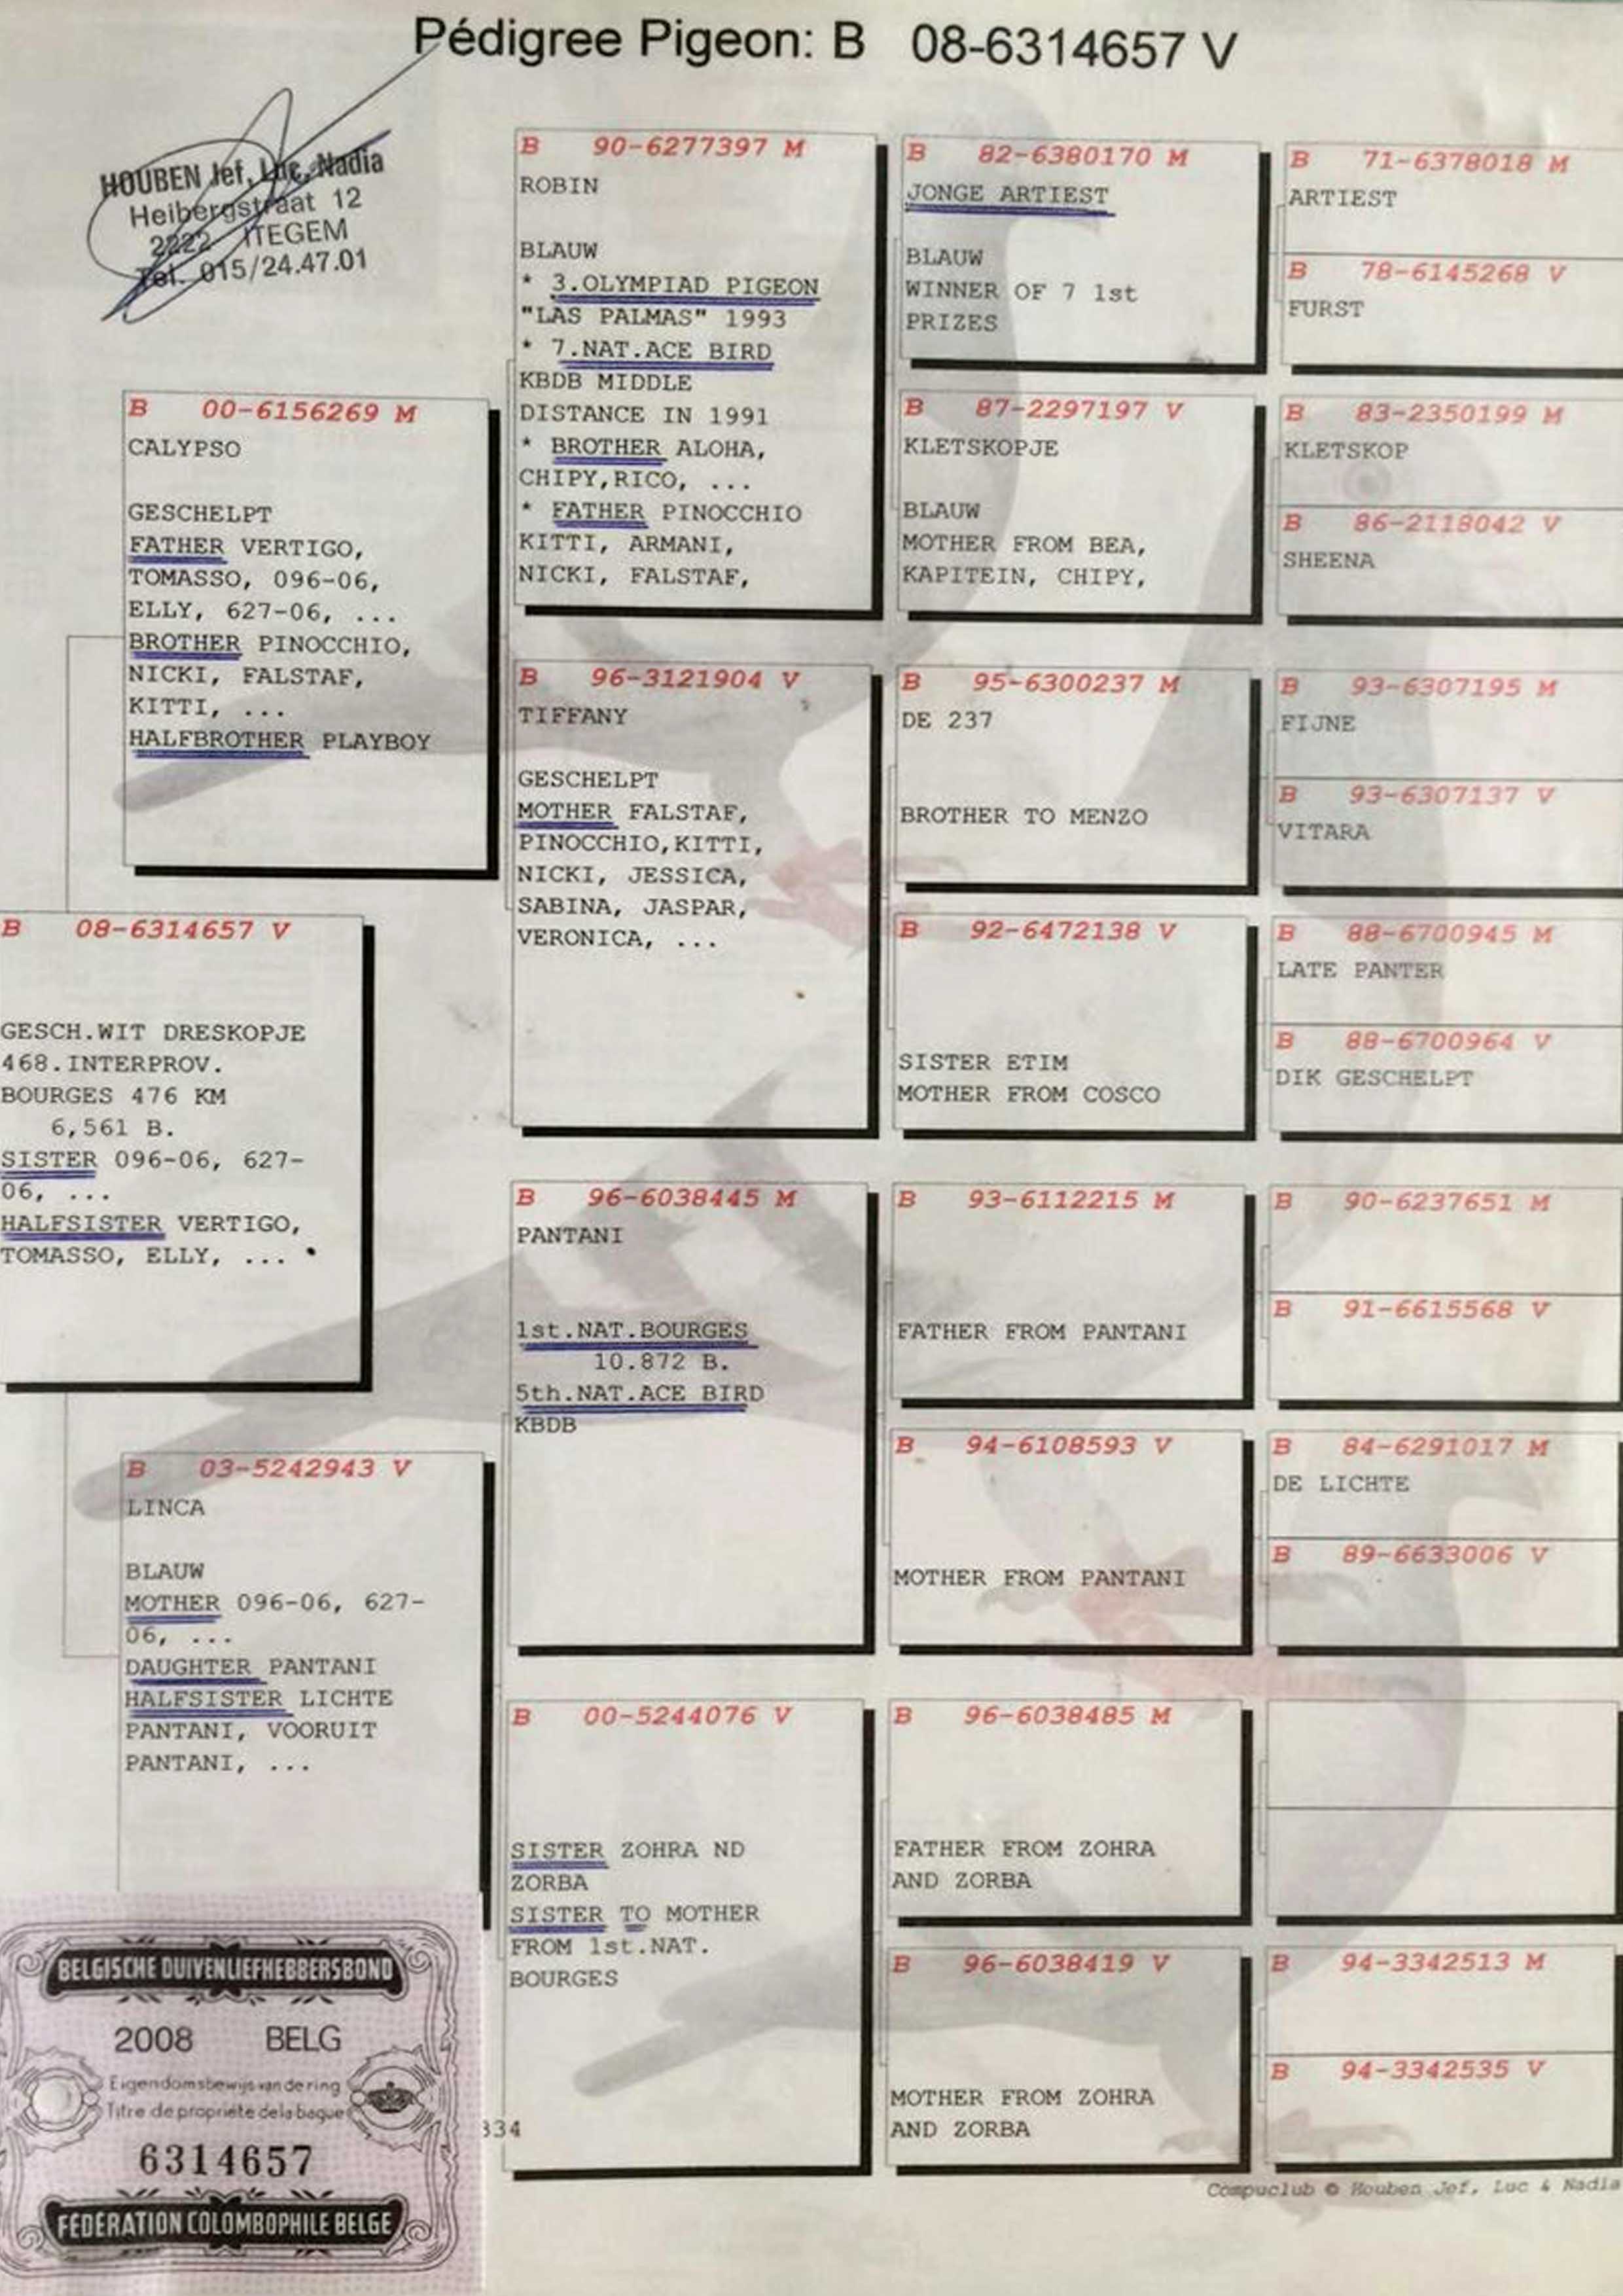 Pédigree Pigeon: B 08-6314657 V
HOUBEN Jef, Luc, Nadia
Heibergstraat 12
2222 ITEGEM
Tel. 015/24.47.01
B 08-6314657 V
GESCH.WIT DRESKOPJE
468.INTERPROV.
BOURGES 476 KM
6,561 B.
SISTER 096-06, 627-
06, ...
HALFSISTER VERTIGO,
TOMASSO, ELLY, ...
B 00-6156269 M
CALYPSO
GESCHELPT
FATHER VERTIGO,
TOMASSO, 096-06,
ELLY, 627-06, ...
BROTHER PINOCCHIO,
NICKI, FALSTAF,
KITTI, ...
HALFBROTHER PLAYBOY
B 03-5242943 V
LINCA
BLAUW
MOTHER 096-06, 627-
06, ...
DAUGHTER PANTANI
HALFSISTER LICHTE
PANTANI, VOORUIT
PANTANI, ...
B 90-6277397 M
ROBIN
BLAUW
* 3.OLYMPIAD PIGEON
"LAS PALMAS" 1993
* 7.NAT.ACE BIRD
KBDB MIDDLE
DISTANCE IN 1991
* BROTHER ALOHA,
CHIPY,RICO, ...
* FATHER PINOCCHIO
KITTI, ARMANI,
NICKI, FALSTAF,
B 96-3121904 V
TIFFANY
GESCHELPT
MOTHER FALSTAF,
PINOCCHIO,KITTI,
NICKI, JESSICA,
SABINA, JASPAR,
VERONICA, ...
B 96-6038445 M
PANTANI
1st.NAT.BOURGES
10.872 B.
5th.NAT.ACE BIRD
KBDB
B 00-5244076 V
SISTER ZOHRA ND
ZORBA
SISTER TO MOTHER
FROM 1st.NAT.
BOURGES
334
B 82-6380170 M
JONGE ARTIEST
BLAUW
WINNER OF 7 1st
PRIZES
B 87-2297197 V
KLETSKOPJE
BLAUW
MOTHER FROM BEA,
KAPITEIN, CHIPY,
B 95-6300237 M
DE 237
BROTHER TO MENZO
B 92-6472138 V
SISTER ETIM
MOTHER FROM COSCO
B 93-6112215 M
FATHER FROM PANTANI
B 94-6108593 V
MOTHER FROM PANTANI
B 96-6038485 M
FATHER FROM ZOHRA
AND ZORBA
B 96-6038419 V
MOTHER FROM ZOHRA
AND ZORBA
B 71-6378018 M
ARTIEST
B 78-6145268 V
FURST
B 83-2350199 M
KLETSKOP
B 86-2118042 V
SHEENA
B 93-6307195 M
FIJNE
B 93-6307137 V
VITARA
B 88-6700945 M
LATE PANTER
B 88-6700964 V
DIK GESCHELPT
B 90-6237651 M
B 91-6615568 V
B 84-6291017 M
DE LICHTE
B 89-6633006 V
B 94-3342513 M
B 94-3342535 V
Compuclub © Houben Jef, Luc & Nadia
BELGISCHE DUIVENLIEFHEBBERSBOND
2008 BELG
Eigendomsbewijs van de ring
Titre de propriété de la bague
6314657
FÉDÉRATION COLOMBOPHILE BELGE